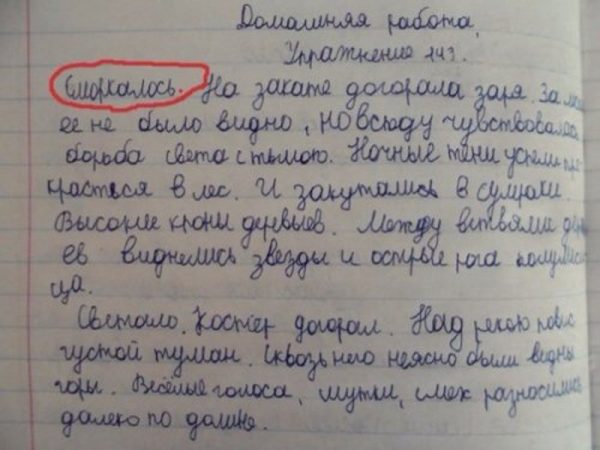 Домашняя работа.
Упражнение 143.
Сморкалось. На закате догорала заря. За
ее не было видно, но всюду чувствовалась
борьба света с тьмою. Ночные тени успели про-
красться в лес. И закутались в сумраки.
Высокие кроны деревьев. Между ветвями дерев
ев виднелись звезды и острые рога полумеся
ца.
Светало. Костёр догорал. Над рекою повис
густой туман. Сквозь него неясно были видны
горы. Весёлые голоса, шутки, смех разносились
далеко по долине.